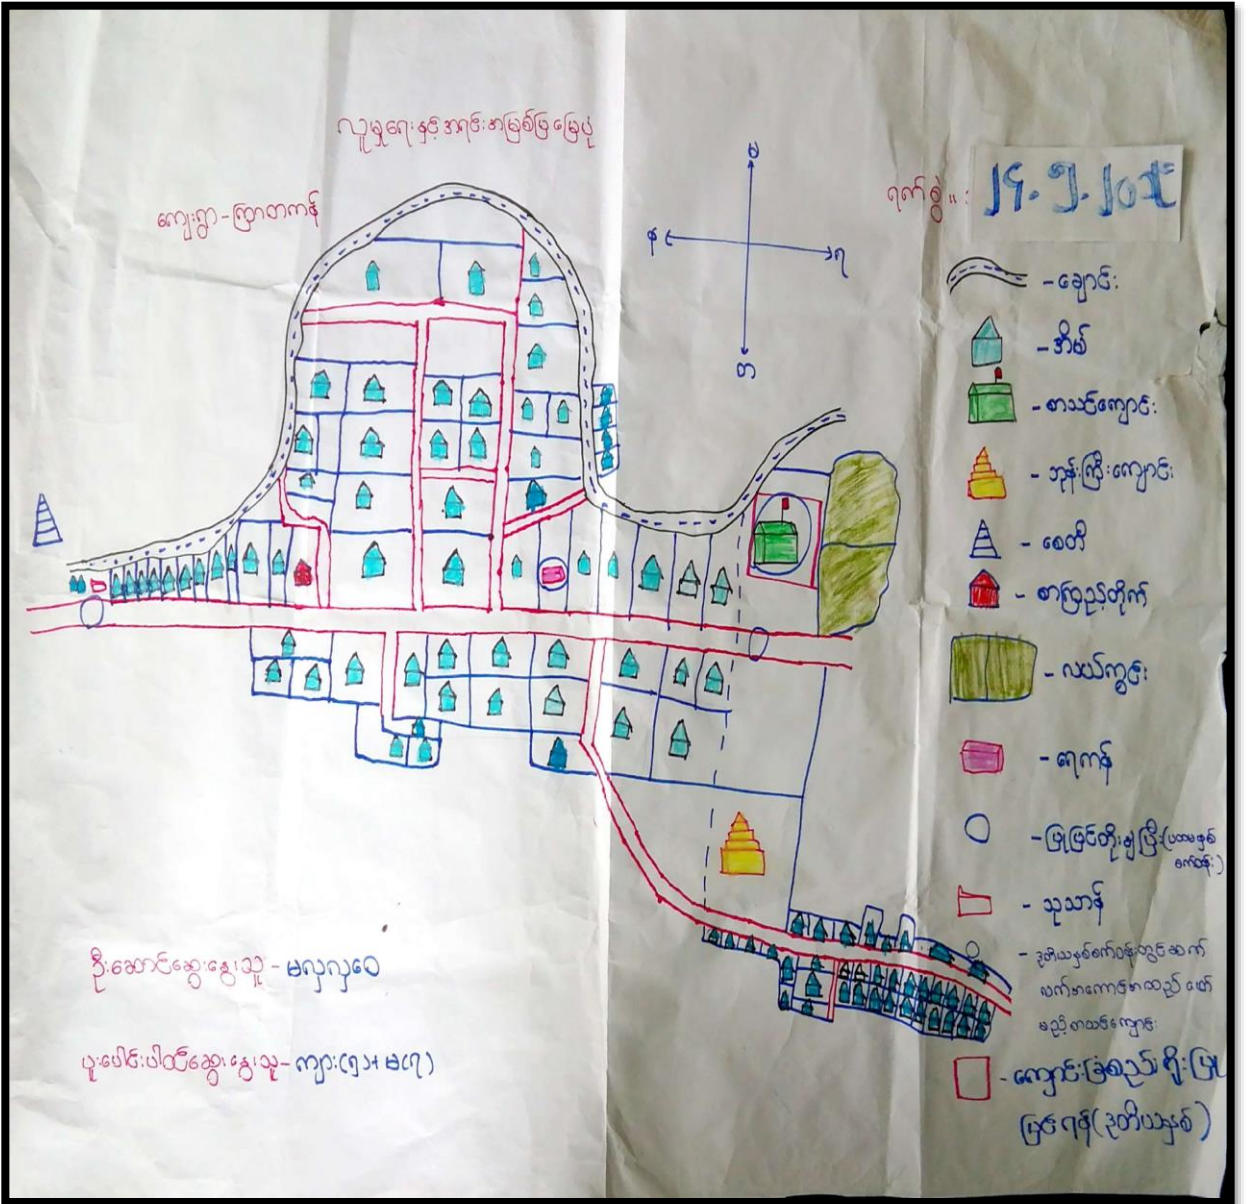 လူမှုရေးနှင့်အရင်းအမြစ်ပြမြေပုံ
ကျေးရွာ-ကြာတကန်
ရက်စွဲ။ : ၂၄.၅.၂၀၁၉
မ
န
ရ
တ
-ချောင်း
-အိမ်
-စာသင်ကျောင်း
-ဘုန်းကြီးကျောင်း
-စေတီ
-စာကြည့်တိုက်
-လယ်ကွင်း
-ရေကန်
-ပြုပြင်တိုးချဲ့ပြီး(ပထမနှစ်
စက်ဝန်း)
-သုသာန်
-ဒုတိယနှစ်စက်ဝန်းတွင်ဆက်
လက်အကောင်အထည်ဖော်
မည့်စာသင်ကျောင်း
-ကျောင်းခြံစည်းရိုးပြု
ပြင်ရန်(ဒုတိယနှစ်)
ဦးဆောင်ဆွေးနွေးသူ-မလှလှဝေ
ပူးပေါင်းပါဝင်ဆွေးနွေးသူ-ကျား(၅)+မ(၇)